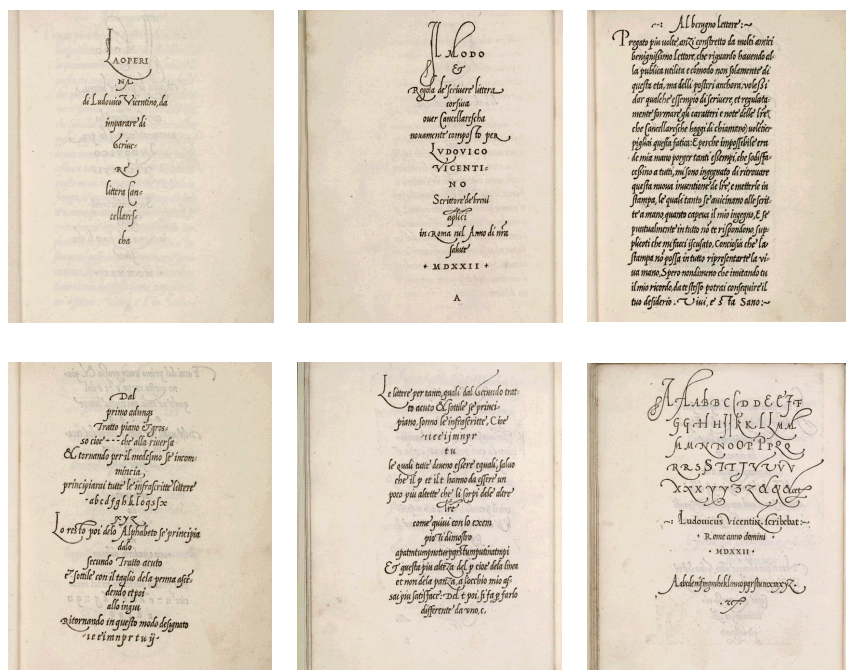 LAOPERI
NA
di Ludovico Vicentino, da
imparare di
scriue=
RE
littera Can=
cellares=
cha
IL MODO
&
Regola de scriuere littera
corsiua
ouer Cancellarescha
nouamente composto per
LVDOVICO
VICENTI=
NO
Scrittore de breui
aplici
in Roma nel Anno di nra
salute
MDXXII
A
Al benigno lettore:
Pregato piu volte, anzi constretto da molti amici
benignissimo Lettore, che riguardo hauendo al=
la publica utilita e cômodo non solamente di
questa età, ma delli posteri anchora, volessi
dar qualche essempio di scriuere, et regulata=
mente formare gli caratteri e note delle lre,
che Cancellaresche hoggi di chiamano) voletier
pigliai questa fatica: E perche impossibile era
de mia mano porger tanti essempi, che sodisfa=
cessino a tutti, mi sono ingegnato di ritrouare
questa nuoua inuentione de lre, e metterle in
stampa, le quali tanto se auicinano alle scrit=
te a mano, quanto capeua il mio ingegno, E se
puntualmente in tutto nò te rispondono, sup=
plicoti che mi facci iscusato, Conciosia che la
stampa nò possa in tutto ripresentarte la vi=
ua mano, Spero nondimeno che imitando tu
il mio ricordo, da te stesso potrai consequire il
tuo desiderio. Viui, e Sta Sano:~
Dal
primo adunqs
Tratto piano & gros=
so cioe - - - che alla riuersa
& tornando per il medesmo se incom=
mincia,
principiarai tutte le infrascritte littere
- abcdfghkloqsſx
xyz
Lo resto poi delo Alphabeto se principia
dalo
secundo Tratto acuto
e sottile con il taglio della penna ascē=
dendo et poi
allo ingiu
Ritornando in questo modo designato
- ı c e ı̇ m n p r t u ij -
Le littere per tanto, quali dal secundo trat=
to acuto & sottile se princi=
piano, sonno le infrascritte, Cioe
ı ı c e ı̇ j m n p r
t u
le quali tutte deueno essere equali, saluo
che il p et il t hanno da essere un
poco piu altette che li corpi dele altre
lre
come quiui con lo exem
pio ti dimostro
& questa piu altezza del p cioe dela linea
et non dela panza, a l'occhio mio as=
sai piu satisface: Del t poi, si fa p farlo
differente da vno, c.
A A A B B C C D D E E F F
G G H H I J K K L L M M
M M N N O O P P Q Q
R R S S T T J V V V V
X X X Y Y Z Z
Ludouicus Vicentin. scribebat
Rome anno domini
MDXXII